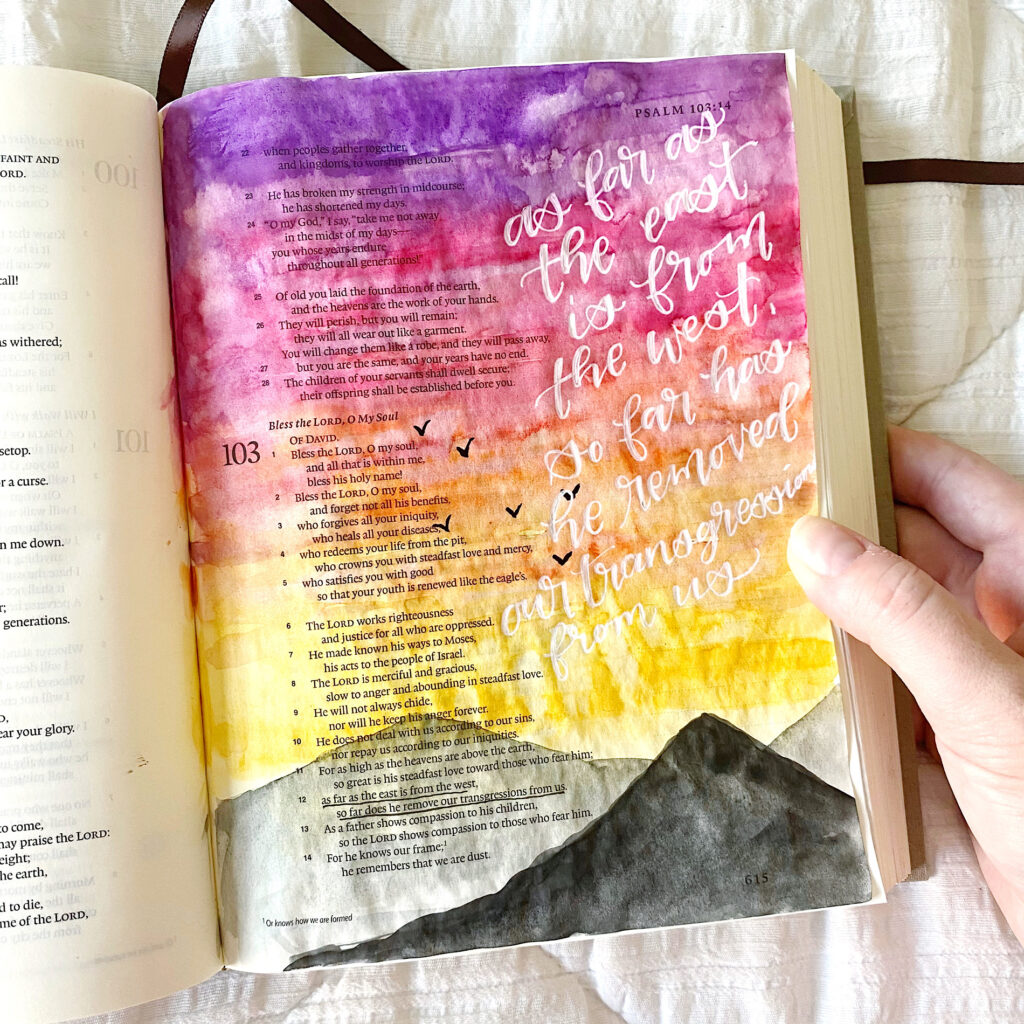 FAINT AND
ORD.
call!
as withered;
setop.
or a curse.
n me down.
r;
generations.
D,
ear your glory.
to come,
may praise the LORD:
eight;
he earth,
d to die,
me of the LORD,
100
101
PSALM 103:14
22 when peoples gather together,
and kingdoms, to worship the LORD.
23 He has broken my strength in midcourse;
he has shortened my days.
24 "O my God," I say, "take me not away
in the midst of my days—
you whose years endure
throughout all generations!"
25 Of old you laid the foundation of the earth,
and the heavens are the work of your hands.
26 They will perish, but you will remain;
they will all wear out like a garment.
You will change them like a robe, and they will pass away,
27 but you are the same, and your years have no end.
28 The children of your servants shall dwell secure;
their offspring shall be established before you.
Bless the LORD, O My Soul
103 OF DAVID.
1 Bless the LORD, O my soul,
and all that is within me,
bless his holy name!
2 Bless the LORD, O my soul,
and forget not all his benefits,
3 who forgives all your iniquity,
who heals all your diseases,
4 who redeems your life from the pit,
who crowns you with steadfast love and mercy,
5 who satisfies you with good
so that your youth is renewed like the eagle's.
6 The LORD works righteousness
and justice for all who are oppressed.
7 He made known his ways to Moses,
his acts to the people of Israel.
8 The LORD is merciful and gracious,
slow to anger and abounding in steadfast love.
9 He will not always chide,
nor will he keep his anger forever.
10 He does not deal with us according to our sins,
nor repay us according to our iniquities.
11 For as high as the heavens are above the earth,
so great is his steadfast love toward those who fear him;
12 as far as the east is from the west,
so far does he remove our transgressions from us.
13 As a father shows compassion to his children,
so the LORD shows compassion to those who fear him.
14 For he knows our frame;1
he remembers that we are dust.
1 Or knows how we are formed
615
as far as
the east
is from
the west,
so far has
he removed
our transgression
from us